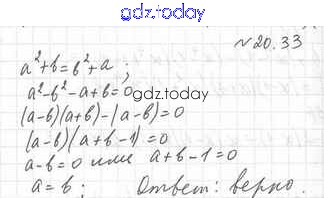 gdz.today
№20.33
a²+b=b²+a;
a²-b²-a+b=0
gdz.today
(a-b)(a+b)-(a-b)=0
(a-b)(a+b-1)=0
a-b=0 или a+b-1=0
a=b; Ответ: верно.